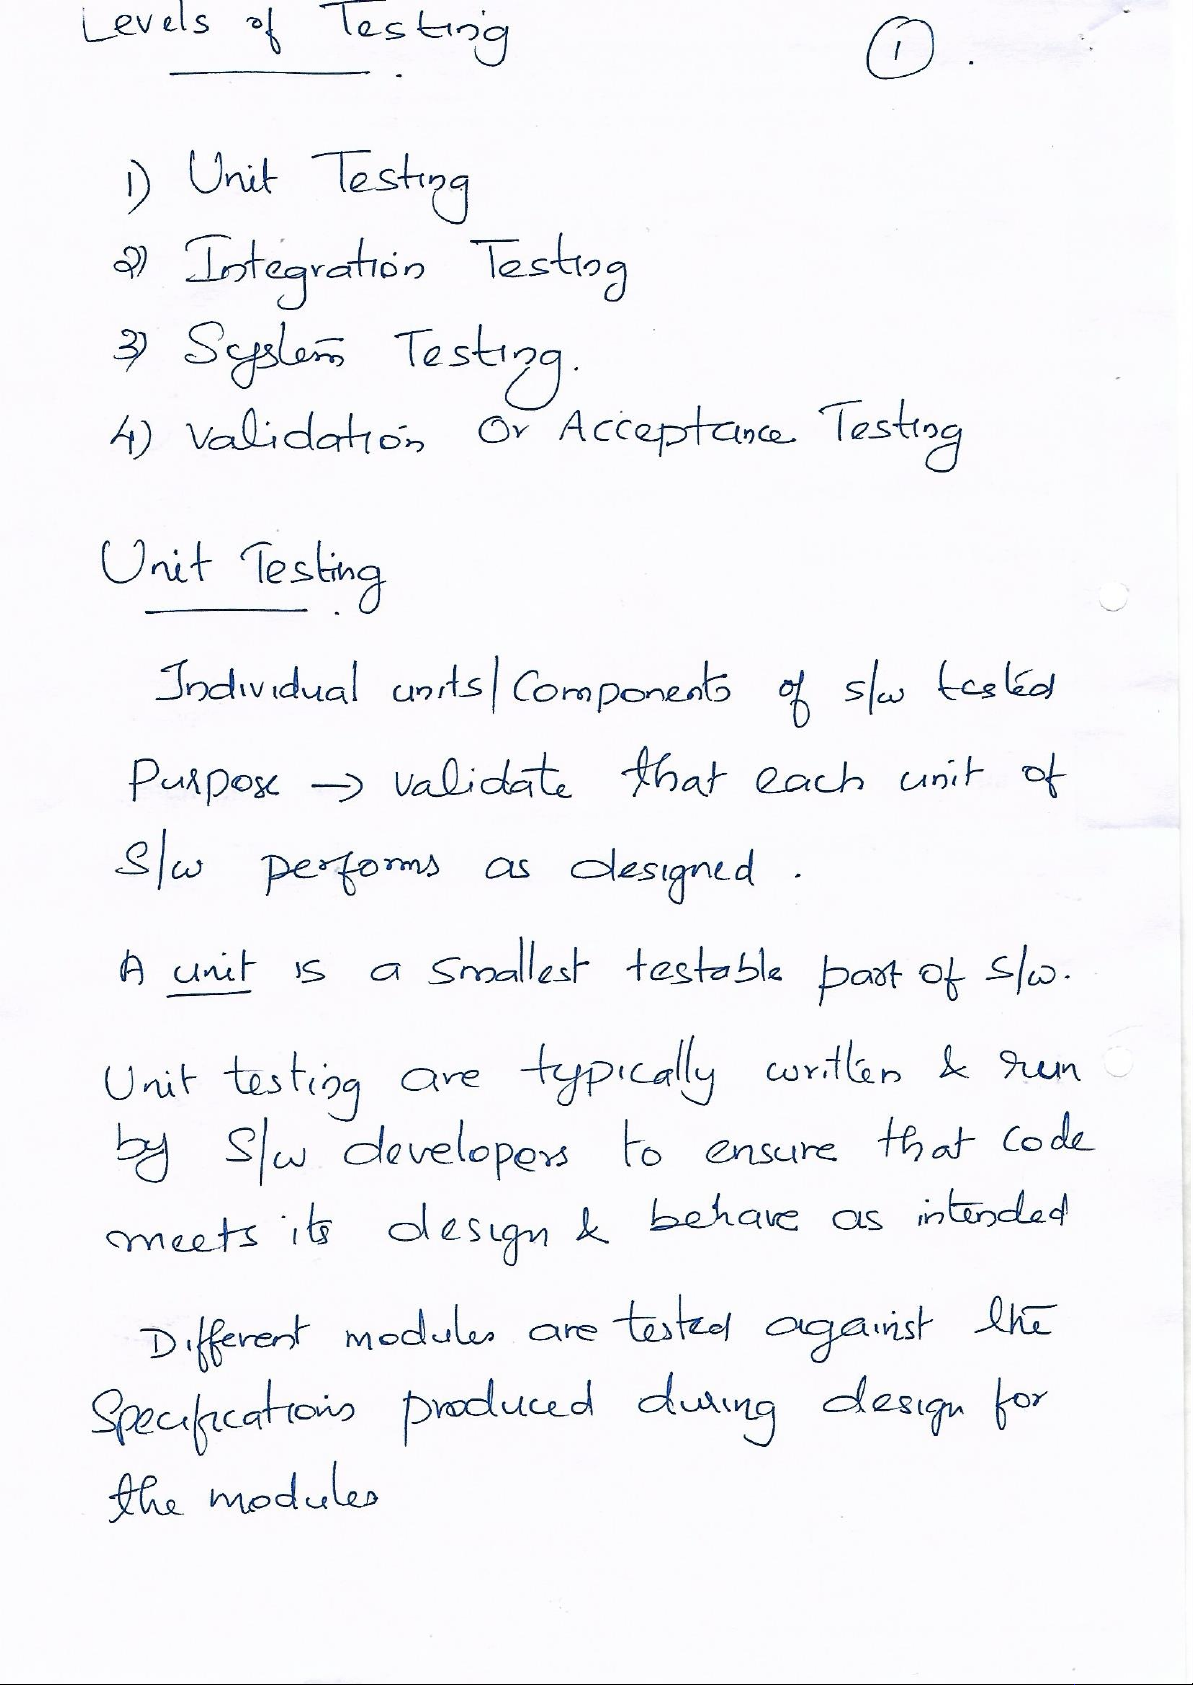 Levels of Testing
1
1) Unit Testing
2) Integration Testing
3) System Testing.
4) Validation Or Acceptance Testing
Unit Testing
Individual units/Components of s/w tested
Purpose → validate that each unit of
S/w performs as designed.
A unit is a smallest testable part of S/w.
Unit testing are typically written & run
by S/w developers to ensure that Code
meets its design & behave as intended
Different modules are tested against the
Specifications produced during design for
the modules